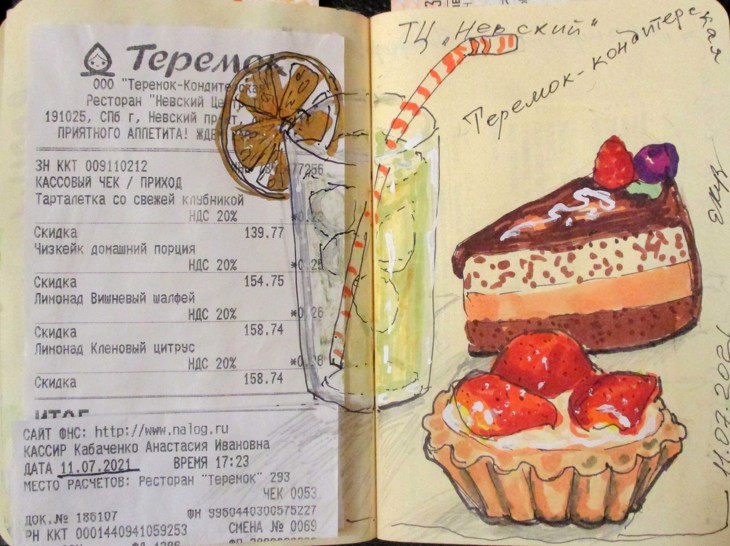 Теремок
ООО "Теремок-Кондитерская
Ресторан "Невский Це
191025, СПб г, Невский пр
ПРИЯТНОГО АППЕТИТА! ЖД
ЗН ККТ 009110212
КАССОВЫЙ ЧЕК / ПРИХОД
Тарталетка со свежей клубникой
НДС 20%
Скидка 139.77
Чизкейк домашний порция
НДС 20%
Скидка 154.75
Лимонад Вишневый шалфей
НДС 20%
Скидка 158.74
Лимонад Кленовый цитрус
НДС 20%
Скидка 158.74
ИТОГ
САЙТ ФНС: http://www.nalog.ru
КАССИР Кабаченко Анастасия Ивановна
ДАТА 11.07.2021 ВРЕМЯ 17:23
МЕСТО РАСЧЕТОВ: Ресторан "Теремок" 293
ЧЕК 0053
ДОК.№ 186107 ФН 9960440300575227
РН ККТ 0001440941059253 СМЕНА № 0069
ТЦ „Невский"
Теремок-кондитерская
11.07.2021